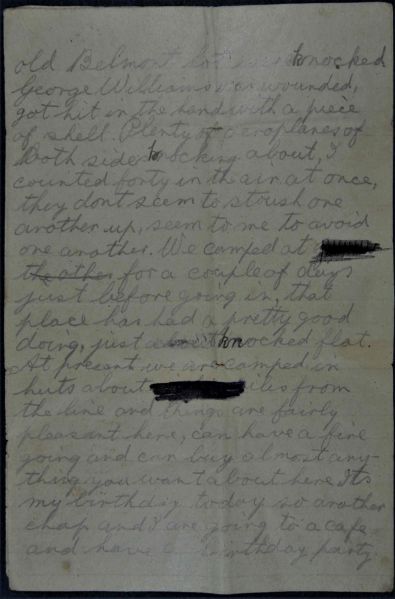 old Belmont got knocked
George Williams was wounded,
got hit in the hand with a piece
of shell. Plenty of aeroplanes of
Both sides knocking about, I
counted forty in the air at once,
they dont seem to stoush one
another up, seem to me to avoid
one another. We camped at
the other for a couple of days
just before going in, that
place has had a pretty good
doing, just about knocked flat.
At present we are camped in
huts about miles from
the line and things are fairly
pleasant here, can have a fire
going and can buy almost any-
thing you want about here Its
my birthday today so another
chap and I are going to a cafe
and have a birthday party.